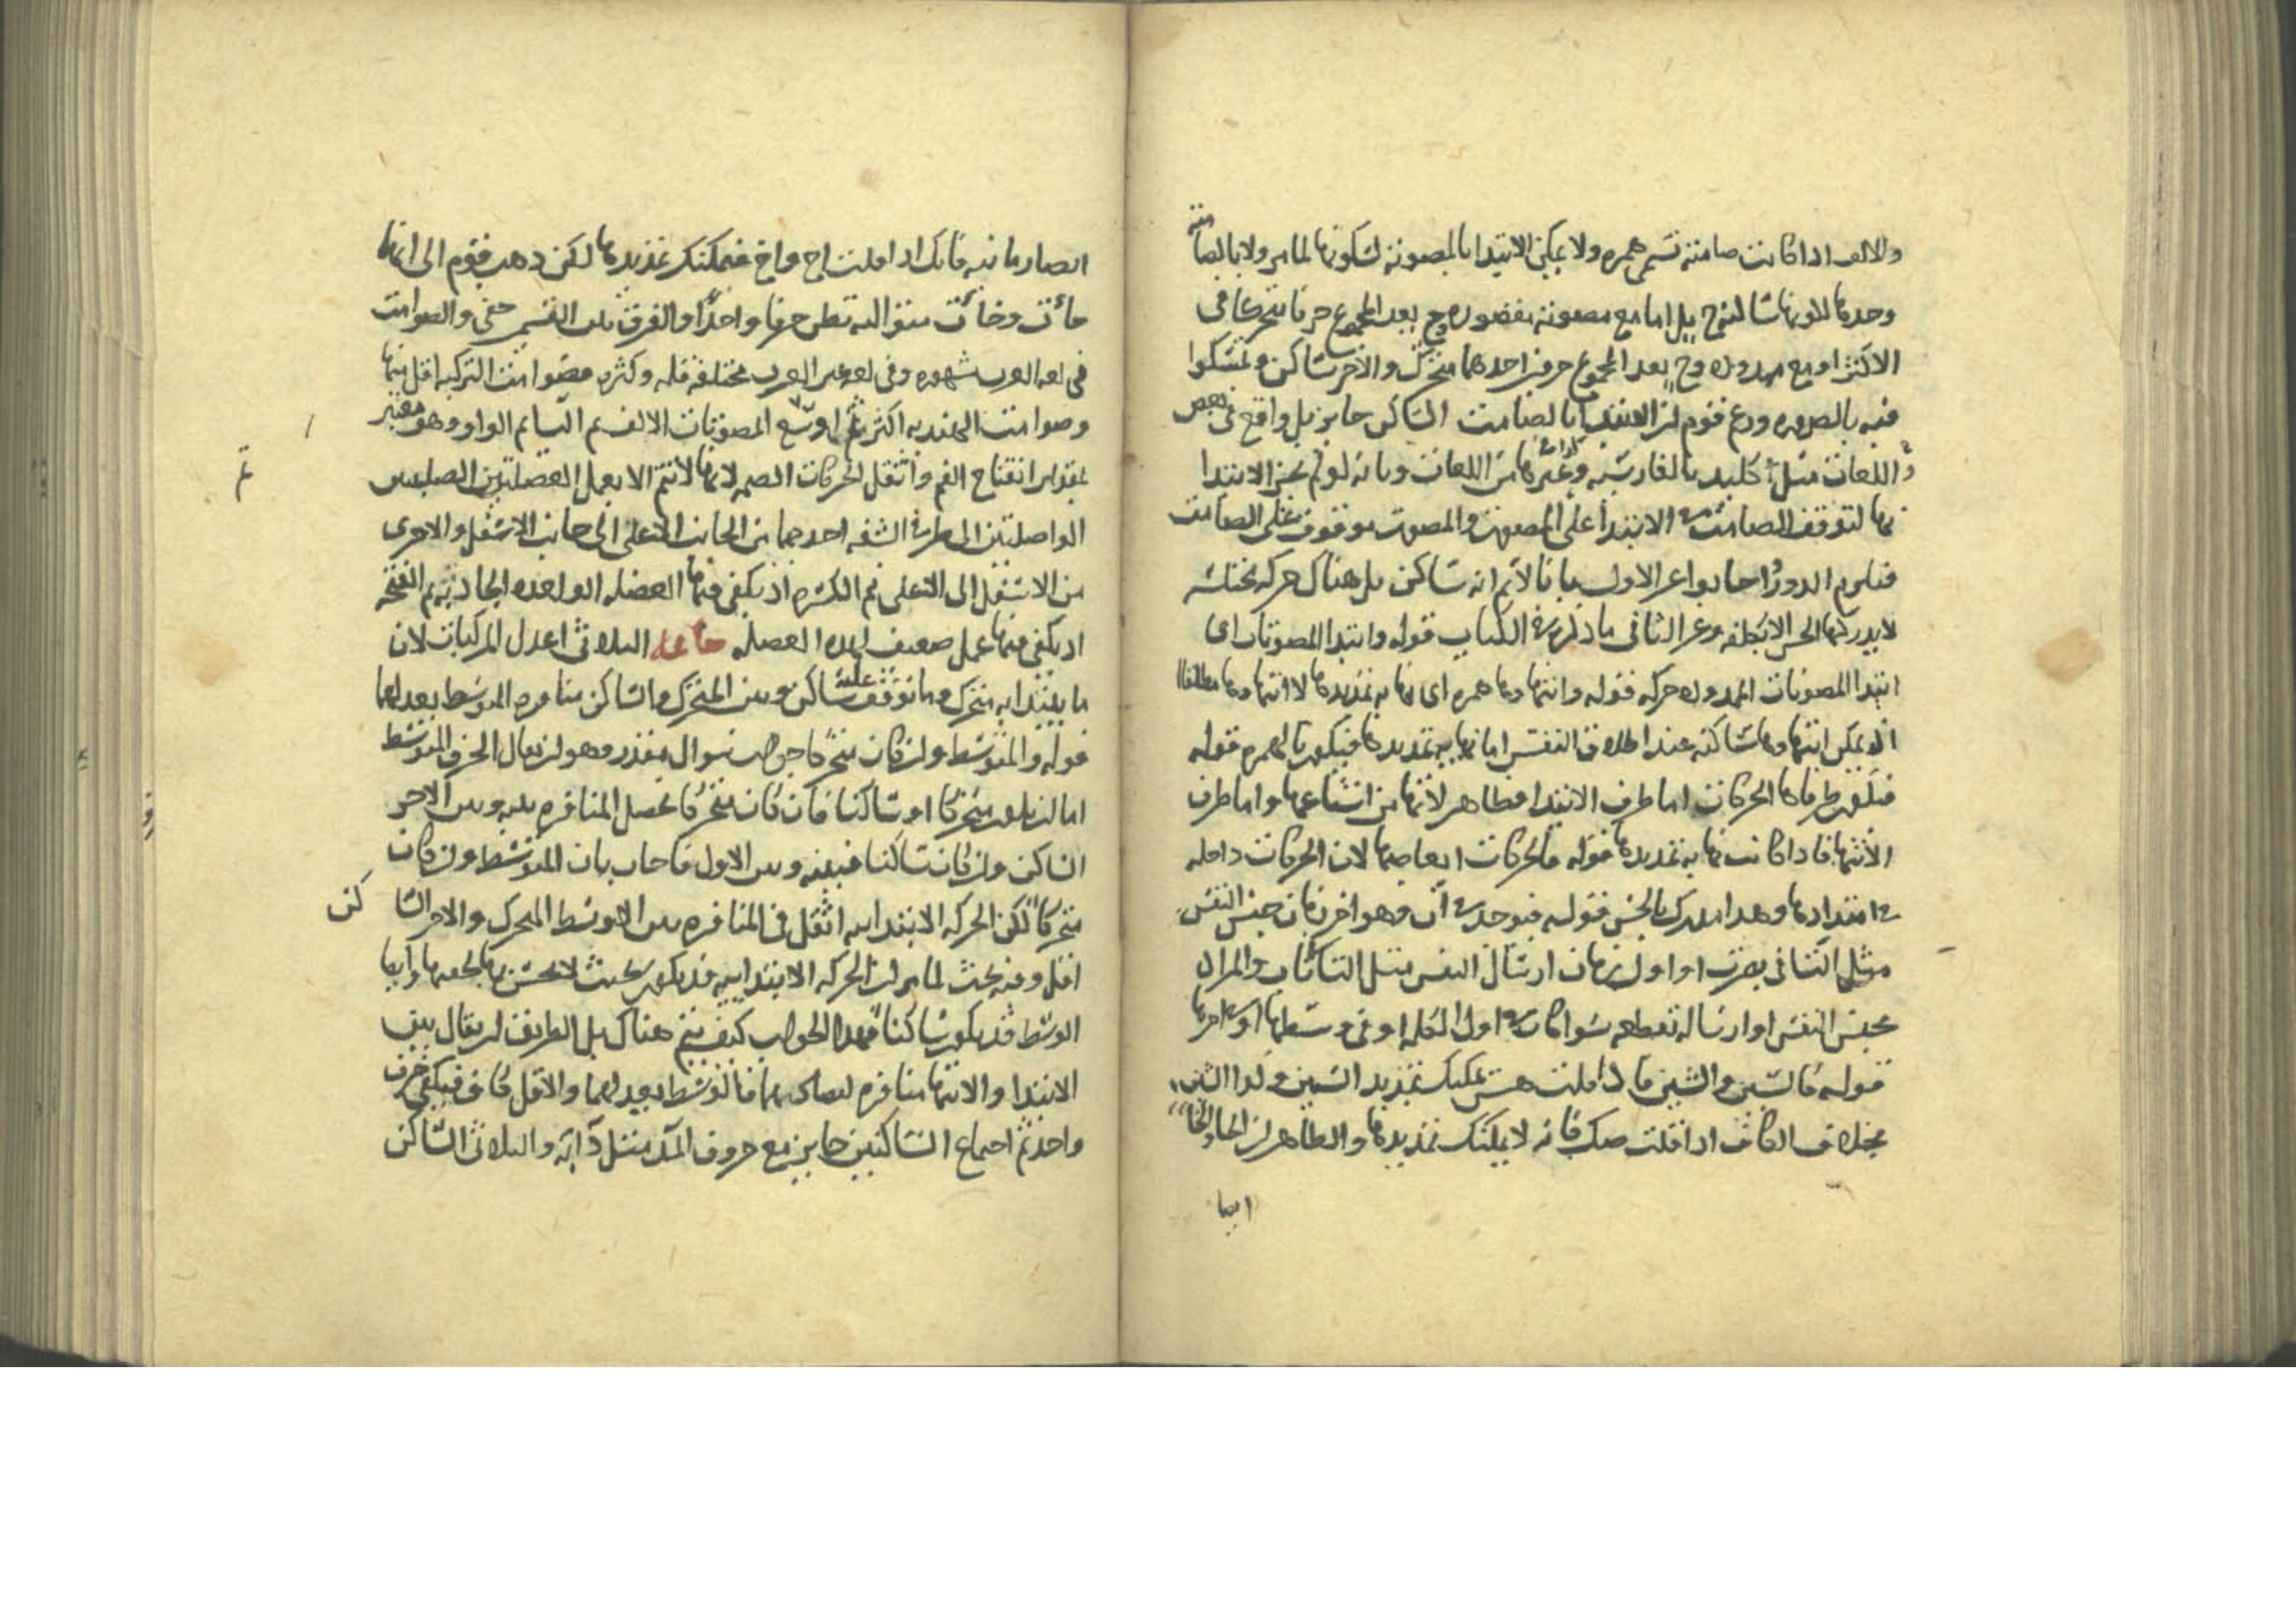 والالف اذا كانت صامتة تسمى همزه ولا يمكن الابتدا بالمصوتة لسكونها لما مر ولا بالصامتة
وحدها بل اما مع مصوتة مقصوره وح يعد المجموع حرفا متحركا في
الاكثر او مع ممدوده وح يعد المجموع حرفين احدهما متحرك والاخر ساكن وتمسكوا
فيه بالضروره وزعم قوم ان الابتدا بالصامت الساكن جايز بل واقع في بعض
اللغات مثل كليد بالفارسيه وغيرها من اللغات وبانه لو لم يجز الابتدا
بها لتوقف الصامت الابتدا على المصوت والمصوت موقوف على الصامت
فيلزم الدور اجابوا عن الاول بانا لا نم انه ساكن بل هناك حركه مختلسه
لا يدركها الحس الا بكلفه وعن الثاني ما ذكر في الكتاب قوله وابتدا المصوتات اى
ابتدا المصوتات الممدوده حركه قوله وانتهاوها همزه اى نهاية تمديدها لا انتهاوها مطلقا
اذ يمكن انتهاوها ساكنه عند اطلاق النفس اما نهاية تمديدها فيكون بالهمزه قوله
طرفاها الحركات اما طرف الابتدا فظاهر لانها من اشباعها واما طرف
الانتها فاذا كانت نهاية تمديدها قوله فالحركات ابعاضها لان الحركات داخله
في امتدادها وهذا مدرك بالحس قوله فيوجد في آن وهو اخر زمان حبس النفس
مثل التا في بعت او اول زمان ارسال النفس مثل التا
بحبس النفس او ارساله تقطعه سوا كان في اول الكلمه او في وسطها او اخرها
قوله كالسين والشين فاذا قلت هس يمكنك تمديد السين وكذا الشين
بخلاف الكاف اذا قلت صك فانه لا يمكنك تمديدها والظاهر ان الحا والخا
ايضا
ايضا زمانيه فانك اذا قلت اح واخ فيمكنك تمديدها لكن ذهب قوم الى انها
حاآت وخاآت متواليه تظن حرفا واحدا والفرق بين القسمين خفى والصوامت
في لغه العرب مشهوره وفي لغه غير العرب مختلفه قله وكثره فصوامت التركيه اقل منها
وصوامت الهنديه اكثر ثم اوسع المصوتات الالف ثم اليا ثم الواو وهو معتبر
بمقدار انفتاح الفم واثقل الحركات الضمه لانها لا تتم الا بعمل العضلتين الصلبتين
الواصلتين الى طرف الشفه احدهما من الجانب الاعلى الى جانب الاسفل والاخرى
من الاسفل الى الاعلى ثم الكسره اذ يكفى فيها العضله الواحده الجاذبه ثم الفتحه
اذ يكفى فيها عمل ضعيف لهذه العضله خاتمه الثلاثى اعدل المركبات لان
ما يبتدا به متحرك وما توقف عليه ساكن وبين المتحرك والساكن منافره المتوسط بعد لهما
قوله والمتوسط وان كان متحركا جواب سوال مقدر وهو ان يقال الحرف المتوسط
اما ان يكون متحركا او ساكنا فان كان متحركا تحصل المنافره بينه وبين الاخر
الساكن وان كان ساكنا فبينه وبين الاول فاجاب بان المتوسط وان كان
متحركا لكن الحركه الابتدائيه اثقل في المنافره بين المتوسط المتحرك والاخر الساكن
اقل وفيه بحث لما مر ان الحركه الابتدائيه قد يكون بحيث لا تحس بها لخفتها وايضا
الوسط قد يكون ساكنا فهذا الجواب كيف يتم هناك بل الطريق ان يقال بين
الابتدا والانتها منافره لتضادهما فالوسط يعد لهما والاقل كاف فيكفى حرف
واحد ثم اجتماع الساكنين جايز مع حروف المد مثل دابه والثلاثى الساكن